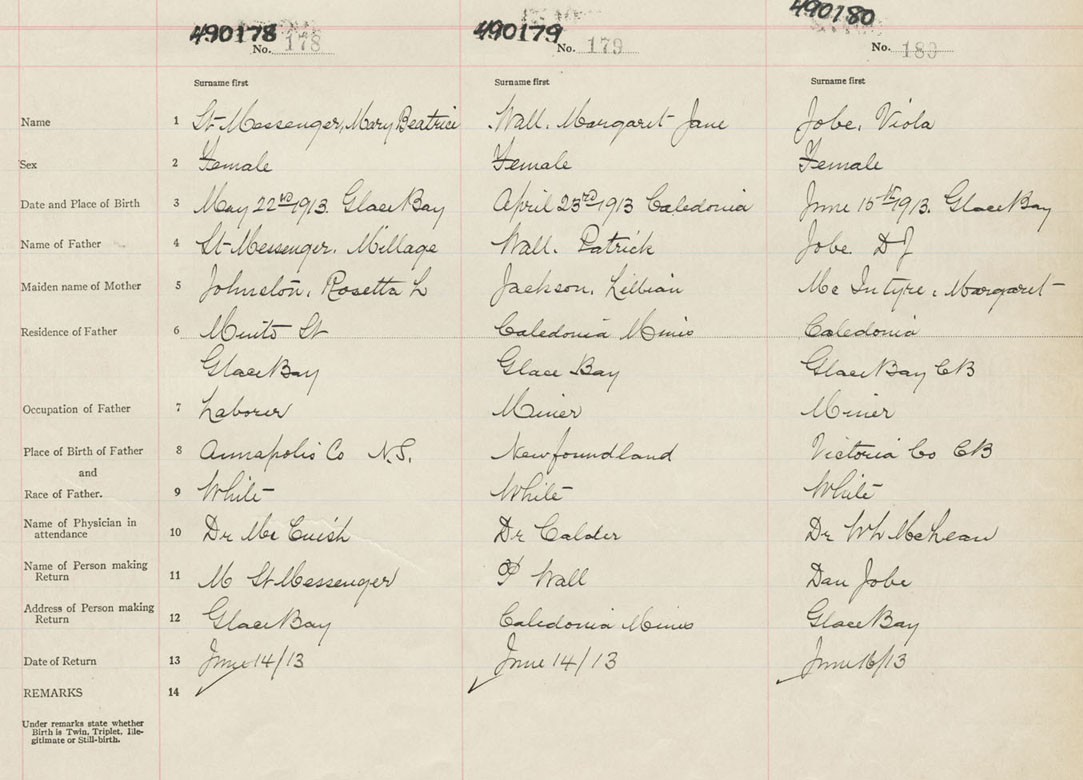 490178 490179 490180
No. 178 No. 179 No. 180
Surname first Surname first Surname first
Name 1 St-Messenger, Mary Beatrice Wall. Margaret Jane Jobe. Viola
Sex 2 Female Female Female
Date and Place of Birth 3 May 22nd 1913. Glace Bay April 23rd 1913 Caledonia June 15th 1913. Glace Bay
Name of Father 4 St-Messenger. Millage Wall. Patrick Jobe. D J
Maiden name of Mother 5 Johnston. Rosetta L Jackson. Lillian Mc Intyre. Margaret
Residence of Father 6 Minto St Caledonia Mines Caledonia
Glace Bay Glace Bay Glace Bay CB
Occupation of Father 7 Laborer Miner Miner
Place of Birth of Father 8 Annapolis Co N.S. Newfoundland Victoria Co CB
and
Race of Father. 9 White White White
Name of Physician in
attendance 10 Dr Mc Cuish Dr Calder Dr Wh McKean
Name of Person making
Return 11 M St Messenger P Wall Dan Jobe
Address of Person making
Return 12 Glace Bay Caledonia Mines Glace Bay
Date of Return 13 June 14/13 June 14/13 June 16/13
REMARKS 14
Under remarks state whether
Birth is Twin, Triplet, Ille-
gitimate or Still-birth.